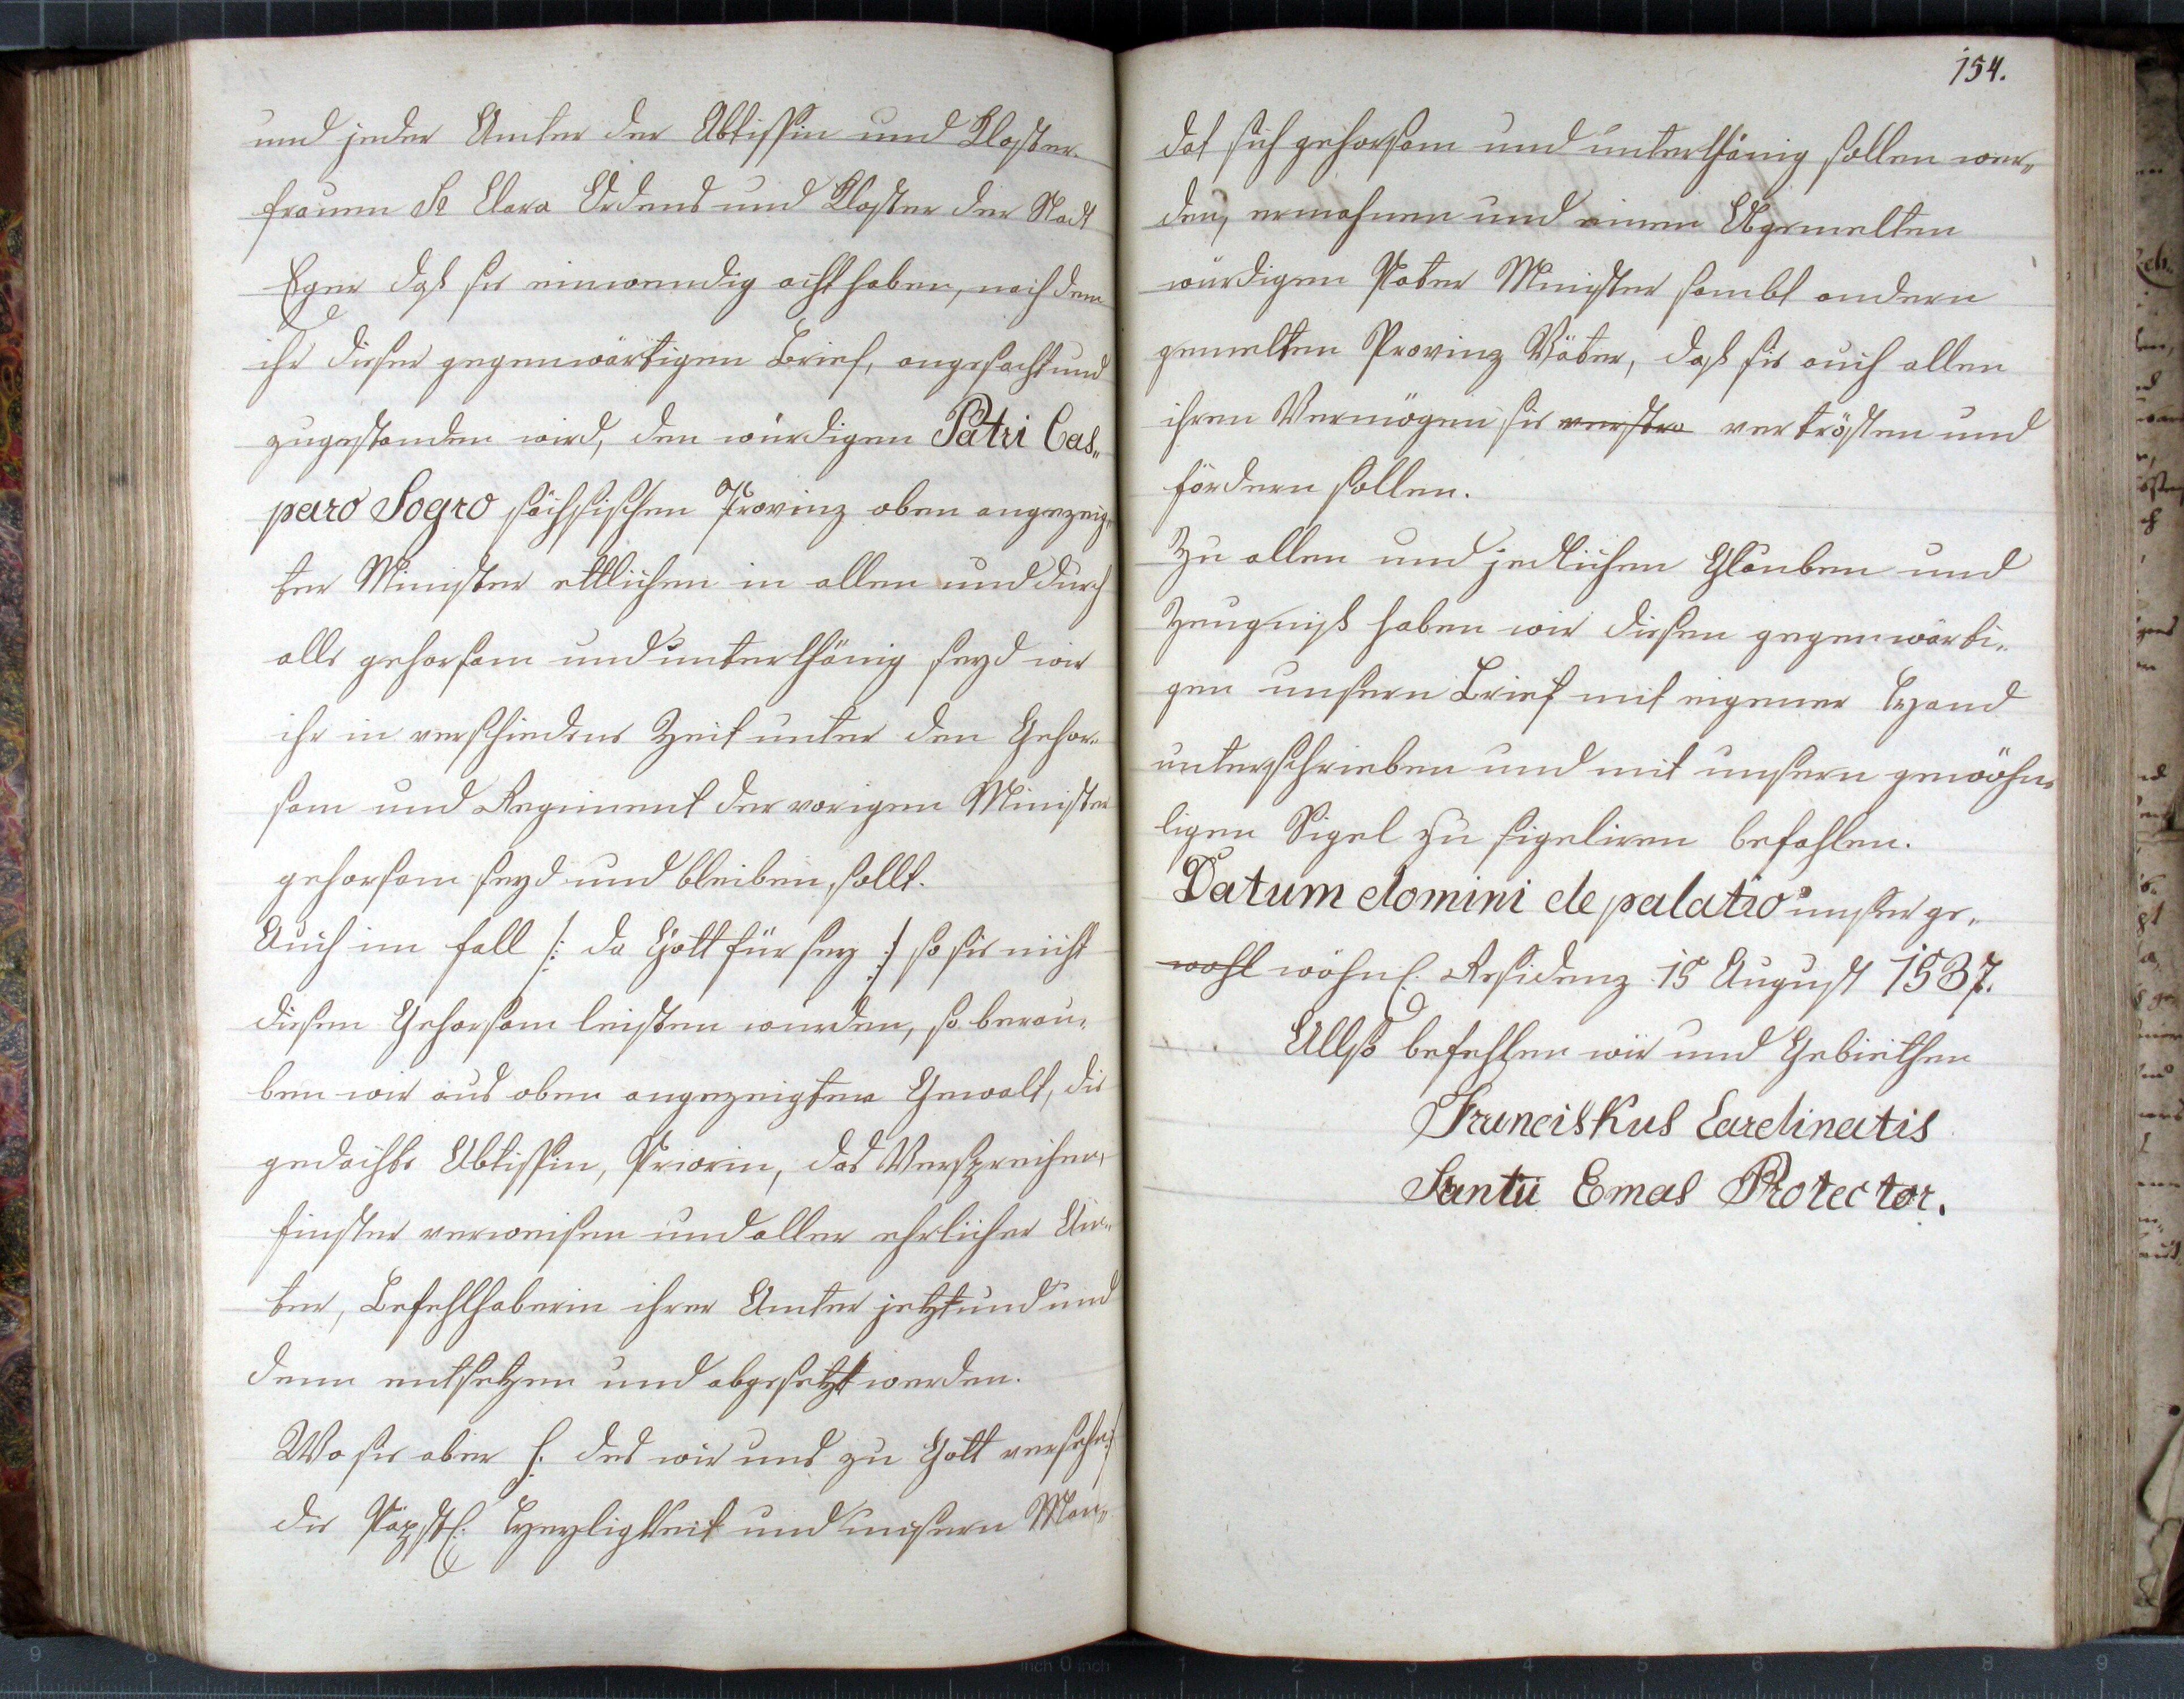 und jeder Amter der Abtissin und Kloster
frauen St Clara Ordens und Kloster der Stadt
Eger daß sie einwendig acht haben, nach dem
ihr dieser gegenwärtigen Brief, angesacht und
zugestanden wird, den würdigen Patri Cas„
paro Sogro sächsischen Provinz oben angezeig„
ter Minister ettlichen in allen und durch
alle gehorsam und unterthänig seyd wie
ihr in verschiedene Zeit unter den Gehor„
sam und Regiment der vorigen Minister
gehorsam seyd und bleiben sollt.
Auch im fall /: da Gott für sey :/ so sie nicht
diesen Gehorsam leisten wurden, so berau„
ben wir aus oben angezeigter Gewalt, die
gedachte Abtissin, Priorin, das Versprechen„
finster verweisen und aller ehrlicher Am„
ter, Befehlhaberin ihrer Amter jetzt und und
denn entsetzen und abgesetzt werden.
Wo sie aber /: des wir uns zu Gott versehn :/
die Päpstl. Heyligkeit und unsern Man„
154.
dat sich gehorsam und unterthänig sollen wer„
den, ermahnen und einen Abgemelten
würdigen Pater Minister sambt andern
gemelten Provinz Väter, daß sie auch allen
ihren Vermögen sie verstro vertrösten und
fördern sollen.
Zu allen und jedlichen Glauben und
Zeugniß haben wir diesen gegenwärti„
gen unsern Brief mit eigener Hand
unterschrieben und mit unsern gewöhn„
ligen Sigel zu sigeliren befohlen.
Datum domini de palatio unser ge„
wohl wöhnl. Residenz 15 August 1537.
Allso befehlen wir und Gebiethen
Franciskus Cardinatis
Santii Emas Protector.